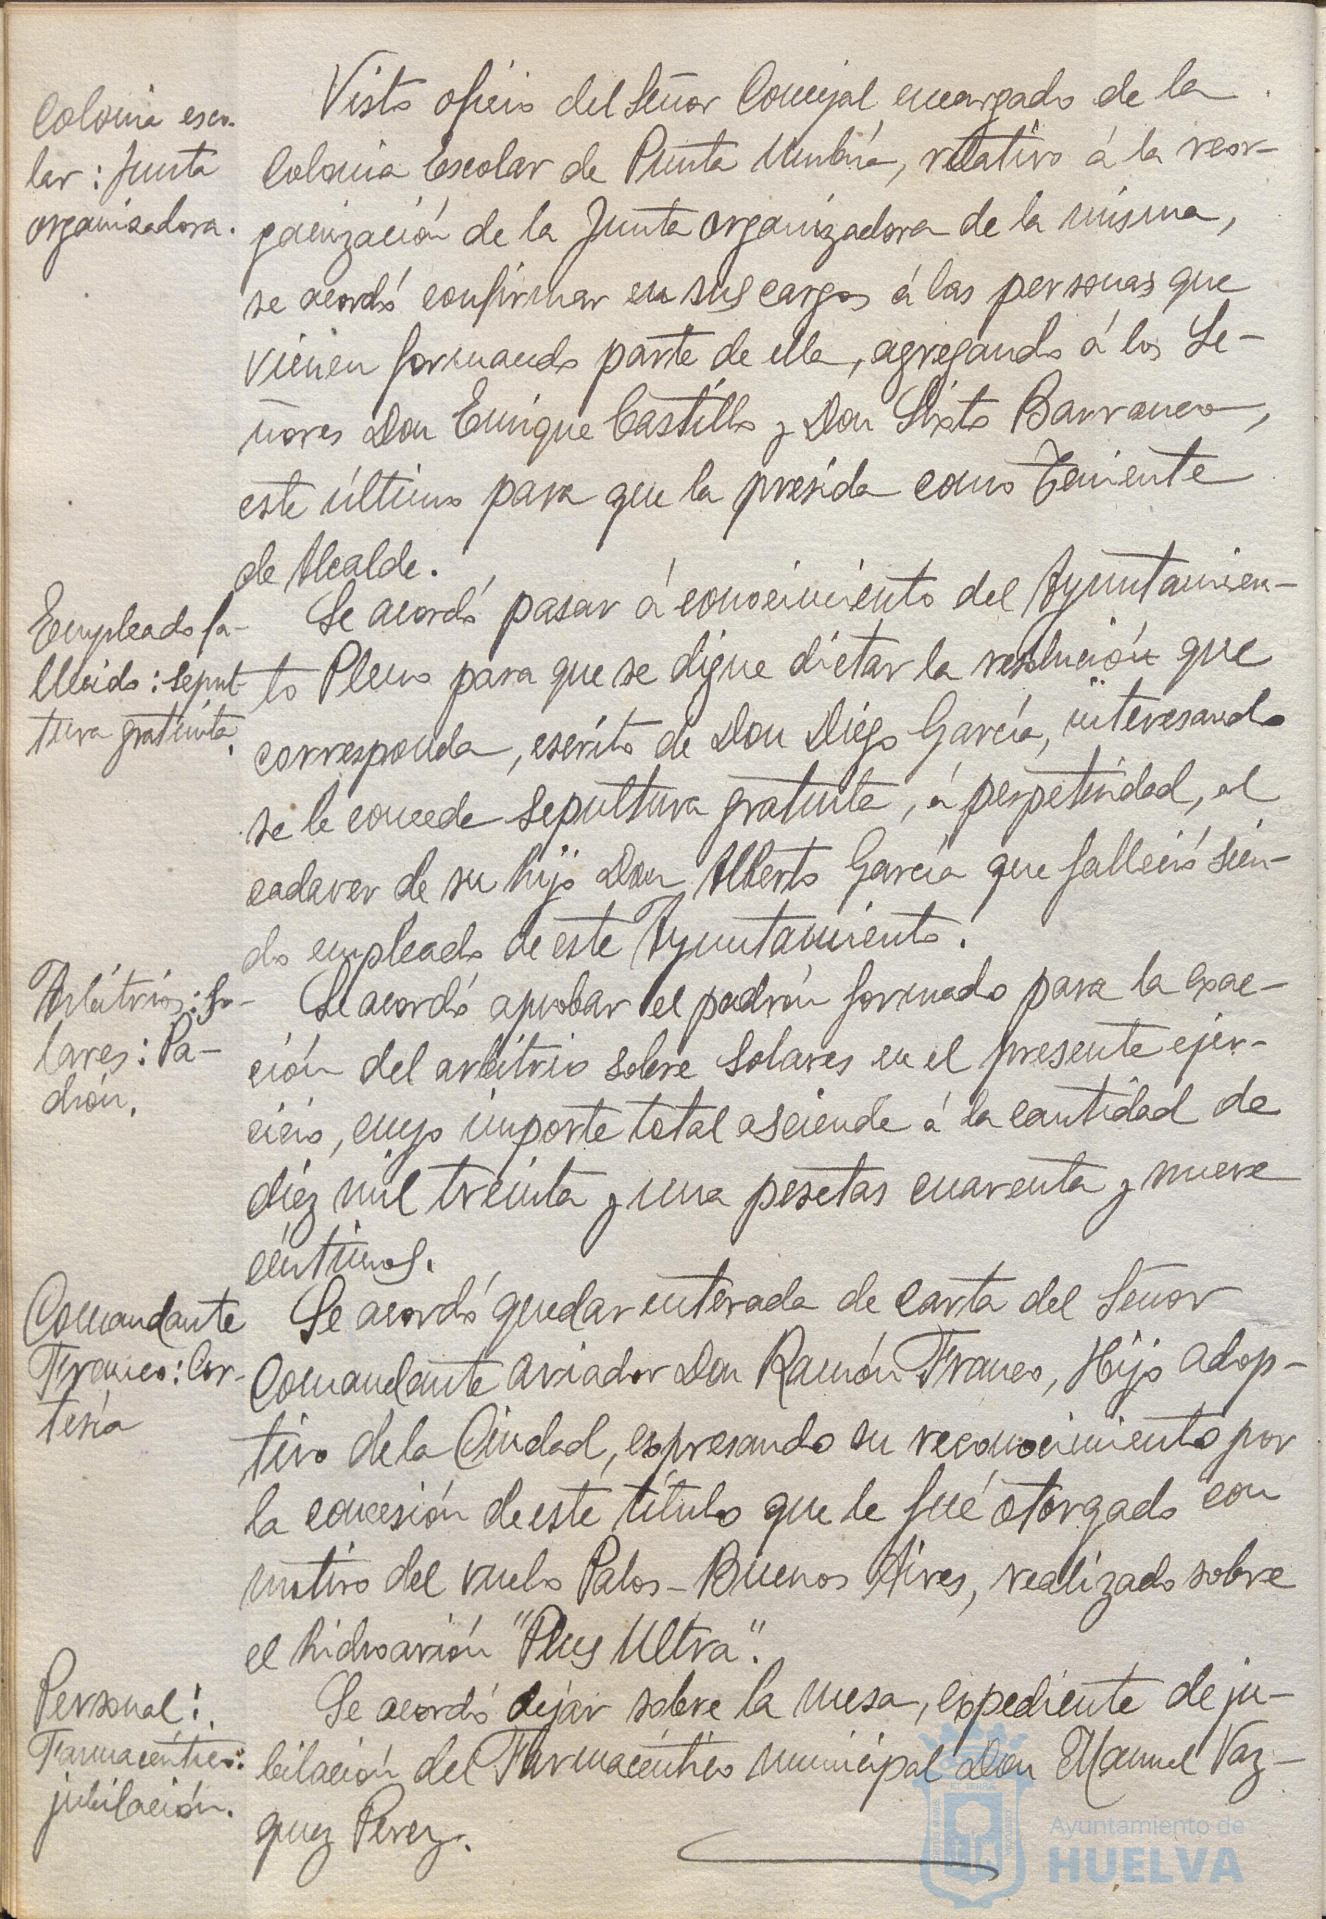 Colonia esco-
lar: Junta
organizadora.
Visto oficio del Señor Concejal encargado de la
Colonia Escolar de Punta Umbría, relativo á la reor-
ganización de la Junta organizadora de la misma,
se acordó confirmar en sus cargos á las personas que
vienen formando parte de ella, agregando á los Se-
ñores Don Enrique Castillo y Don Sixto Barranco,
este último para que la presida como Teniente
de Alcalde.
Empleado fa-
llecido: sepul-
tura gratuita.
Se acordó pasar á conocimiento del Ayuntamien-
to Pleno para que se digne dictar la resolución que
corresponda, escrito de Don Diego García, interesando
se le concede sepultura gratuita, á perpetuidad, al
cadaver de su hijo Don Alberto García que falleció sien-
do empleado de este Ayuntamiento.
Arbitrios: So-
lares: Pa-
drón.
Se acordó aprobar el padrón formado para la exac-
ción del arbitrio sobre solares en el presente ejer-
cicio, cuyo importe total asciende á la cantidad de
diez mil treinta y una pesetas cuarenta y nueve
céntimos.
Comandante
Franco: Cor-
tesía
Se acordó quedar enterada de carta del Señor
Comandante aviador Don Ramón Franco, Hijo adop-
tivo de la Ciudad, expresando su reconocimiento por
la concesión de este título que le fué otorgado con
motivo del vuelo Palos-Buenos Aires, realizado sobre
el hidroavión "Plus Ultra".
Personal:
Farmacéutico:
jubilación.
Se acordó dejar sobre la mesa, expediente de ju-
bilación del Farmacéutico municipal Don Manuel Vaz-
quez Pérez.
Ayuntamiento de
HUELVA